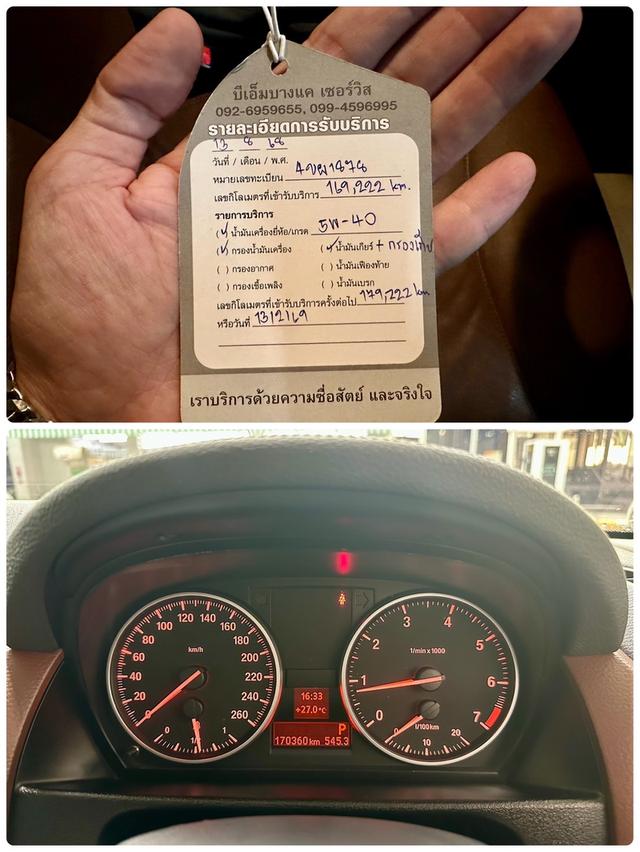 บีเอ็มบางแค เซอร์วิส
092-6959655, 099-4596995
รายละเอียดการรับบริการ
13 8 68
วันที่ / เดือน / พ.ศ.
หมายเลขทะเบียน 4ขผ1878
เลขกิโลเมตรที่เข้ารับบริการ 169,222 km.
รายการบริการ
(✓) น้ำมันเครื่องยี่ห้อ/เกรด 5W-40
(✓) กรองน้ำมันเครื่อง (✓) น้ำมันเกียร์ + กรองเกียร์
( ) กรองอากาศ ( ) น้ำมันเฟืองท้าย
( ) กรองเชื้อเพลิง ( ) น้ำมันเบรก
เลขกิโลเมตรที่เข้ารับบริการครั้งต่อไป 179,222 km
หรือวันที่ 13/2/69
เราบริการด้วยความซื่อสัตย์ และจริงใจ
0 20 40 60 80 100 120 140 160 180 200 220 240 260
km/h
0 1/2 1
16:33
+27.0°C
P
170360 km 545.3
0 1 2 3 4 5 6 7
1/min x 1000
l/100km
0 10 20